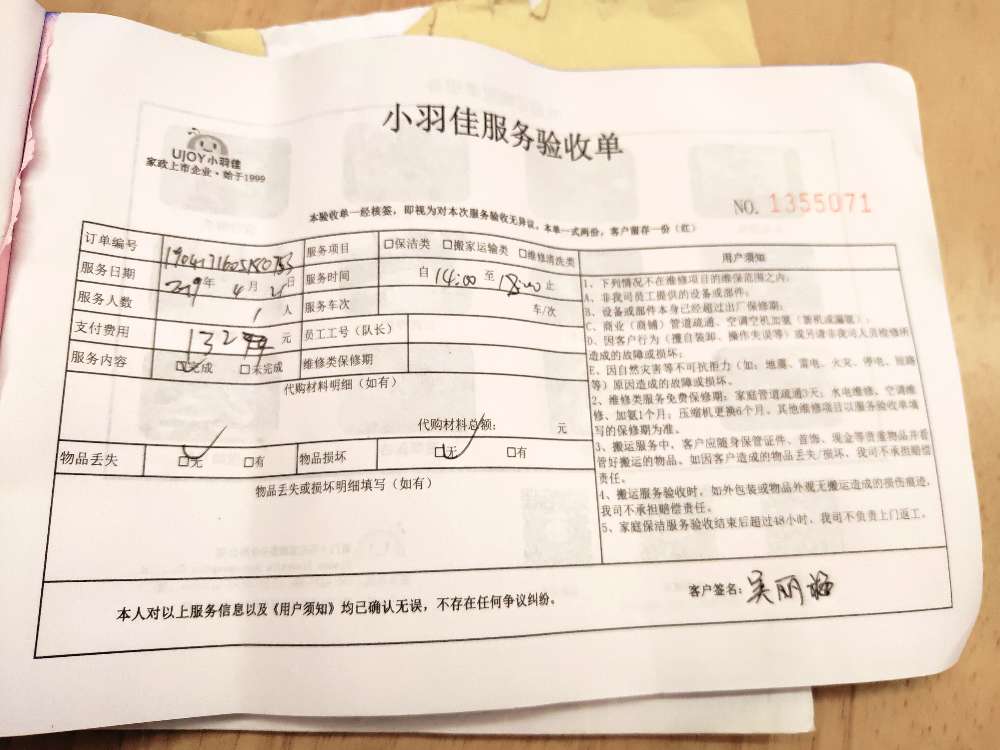 小羽佳服务验收单
UJOY小羽佳
家政上市企业·始于1999
NO. 1355071
本验收单一经核签，即视为对本次服务验收无异议，本单一式两份，客户留存一份（红）
订单编号 服务项目 □保洁类 □搬家运输类 □维修清洗类
服务日期 年 4 月 日 服务时间 自 14:00 至 18:00 止
服务人数 1 人 服务车次 车/次
支付费用 元 员工工号（队长）
服务内容 □完成 □未完成 维修类保修期
代购材料明细（如有）
代购材料总额： 元
物品丢失 □无 □有 物品损坏 □无 □有
物品丢失或损坏明细填写（如有）
用户须知
1、下列情况不在维修项目的维保范围之内：
A、非我司员工提供的设备或部件；
B、设备或部件本身已经超过出厂保修期；
C、商业（商铺）管道疏通、空调空机加氨（新机或漏氨）。
D、因客户行为（擅自装卸、操作失误等）或另请非我司人员检修所
造成的故障或损坏；
E、因自然灾害等不可抗拒力（如：地震、雷电、火灾、停电、短路
等）原因造成的故障或损坏。
2、维修类服务免费保修期：家庭管道疏通3天；水电维修、空调维
修、加氨1个月；压缩机更换6个月。其他维修项目以服务验收单填
写的保修期为准。
3、搬运服务中，客户应随身保管证件、首饰、现金等贵重物品并看
管好搬运的物品。如因客户造成的物品丢失/损坏，我司不承担赔偿
责任。
4、搬运服务验收时，如外包装或物品外观无搬运造成的损伤痕迹，
我司不承担赔偿责任。
5、家庭保洁服务验收结束后超过48小时，我司不负责上门返工。
本人对以上服务信息以及《用户须知》均已确认无误，不存在任何争议纠纷。
客户签名：吴丽梅